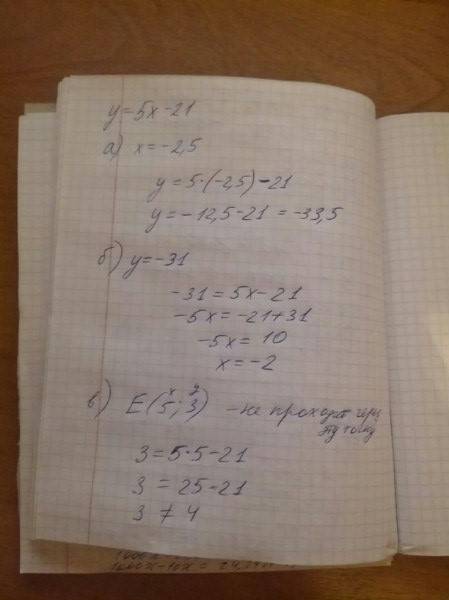 y=5x-21
а) x=-2,5
y=5·(-2,5)-21
y=-12,5-21=-33,5
б) y=-31
-31=5x-21
-5x=-21+31
-5x=10
x=-2
x y
в) E(5;3) -не проходит через
эту точку
3=5·5-21
3=25-21
3≠4